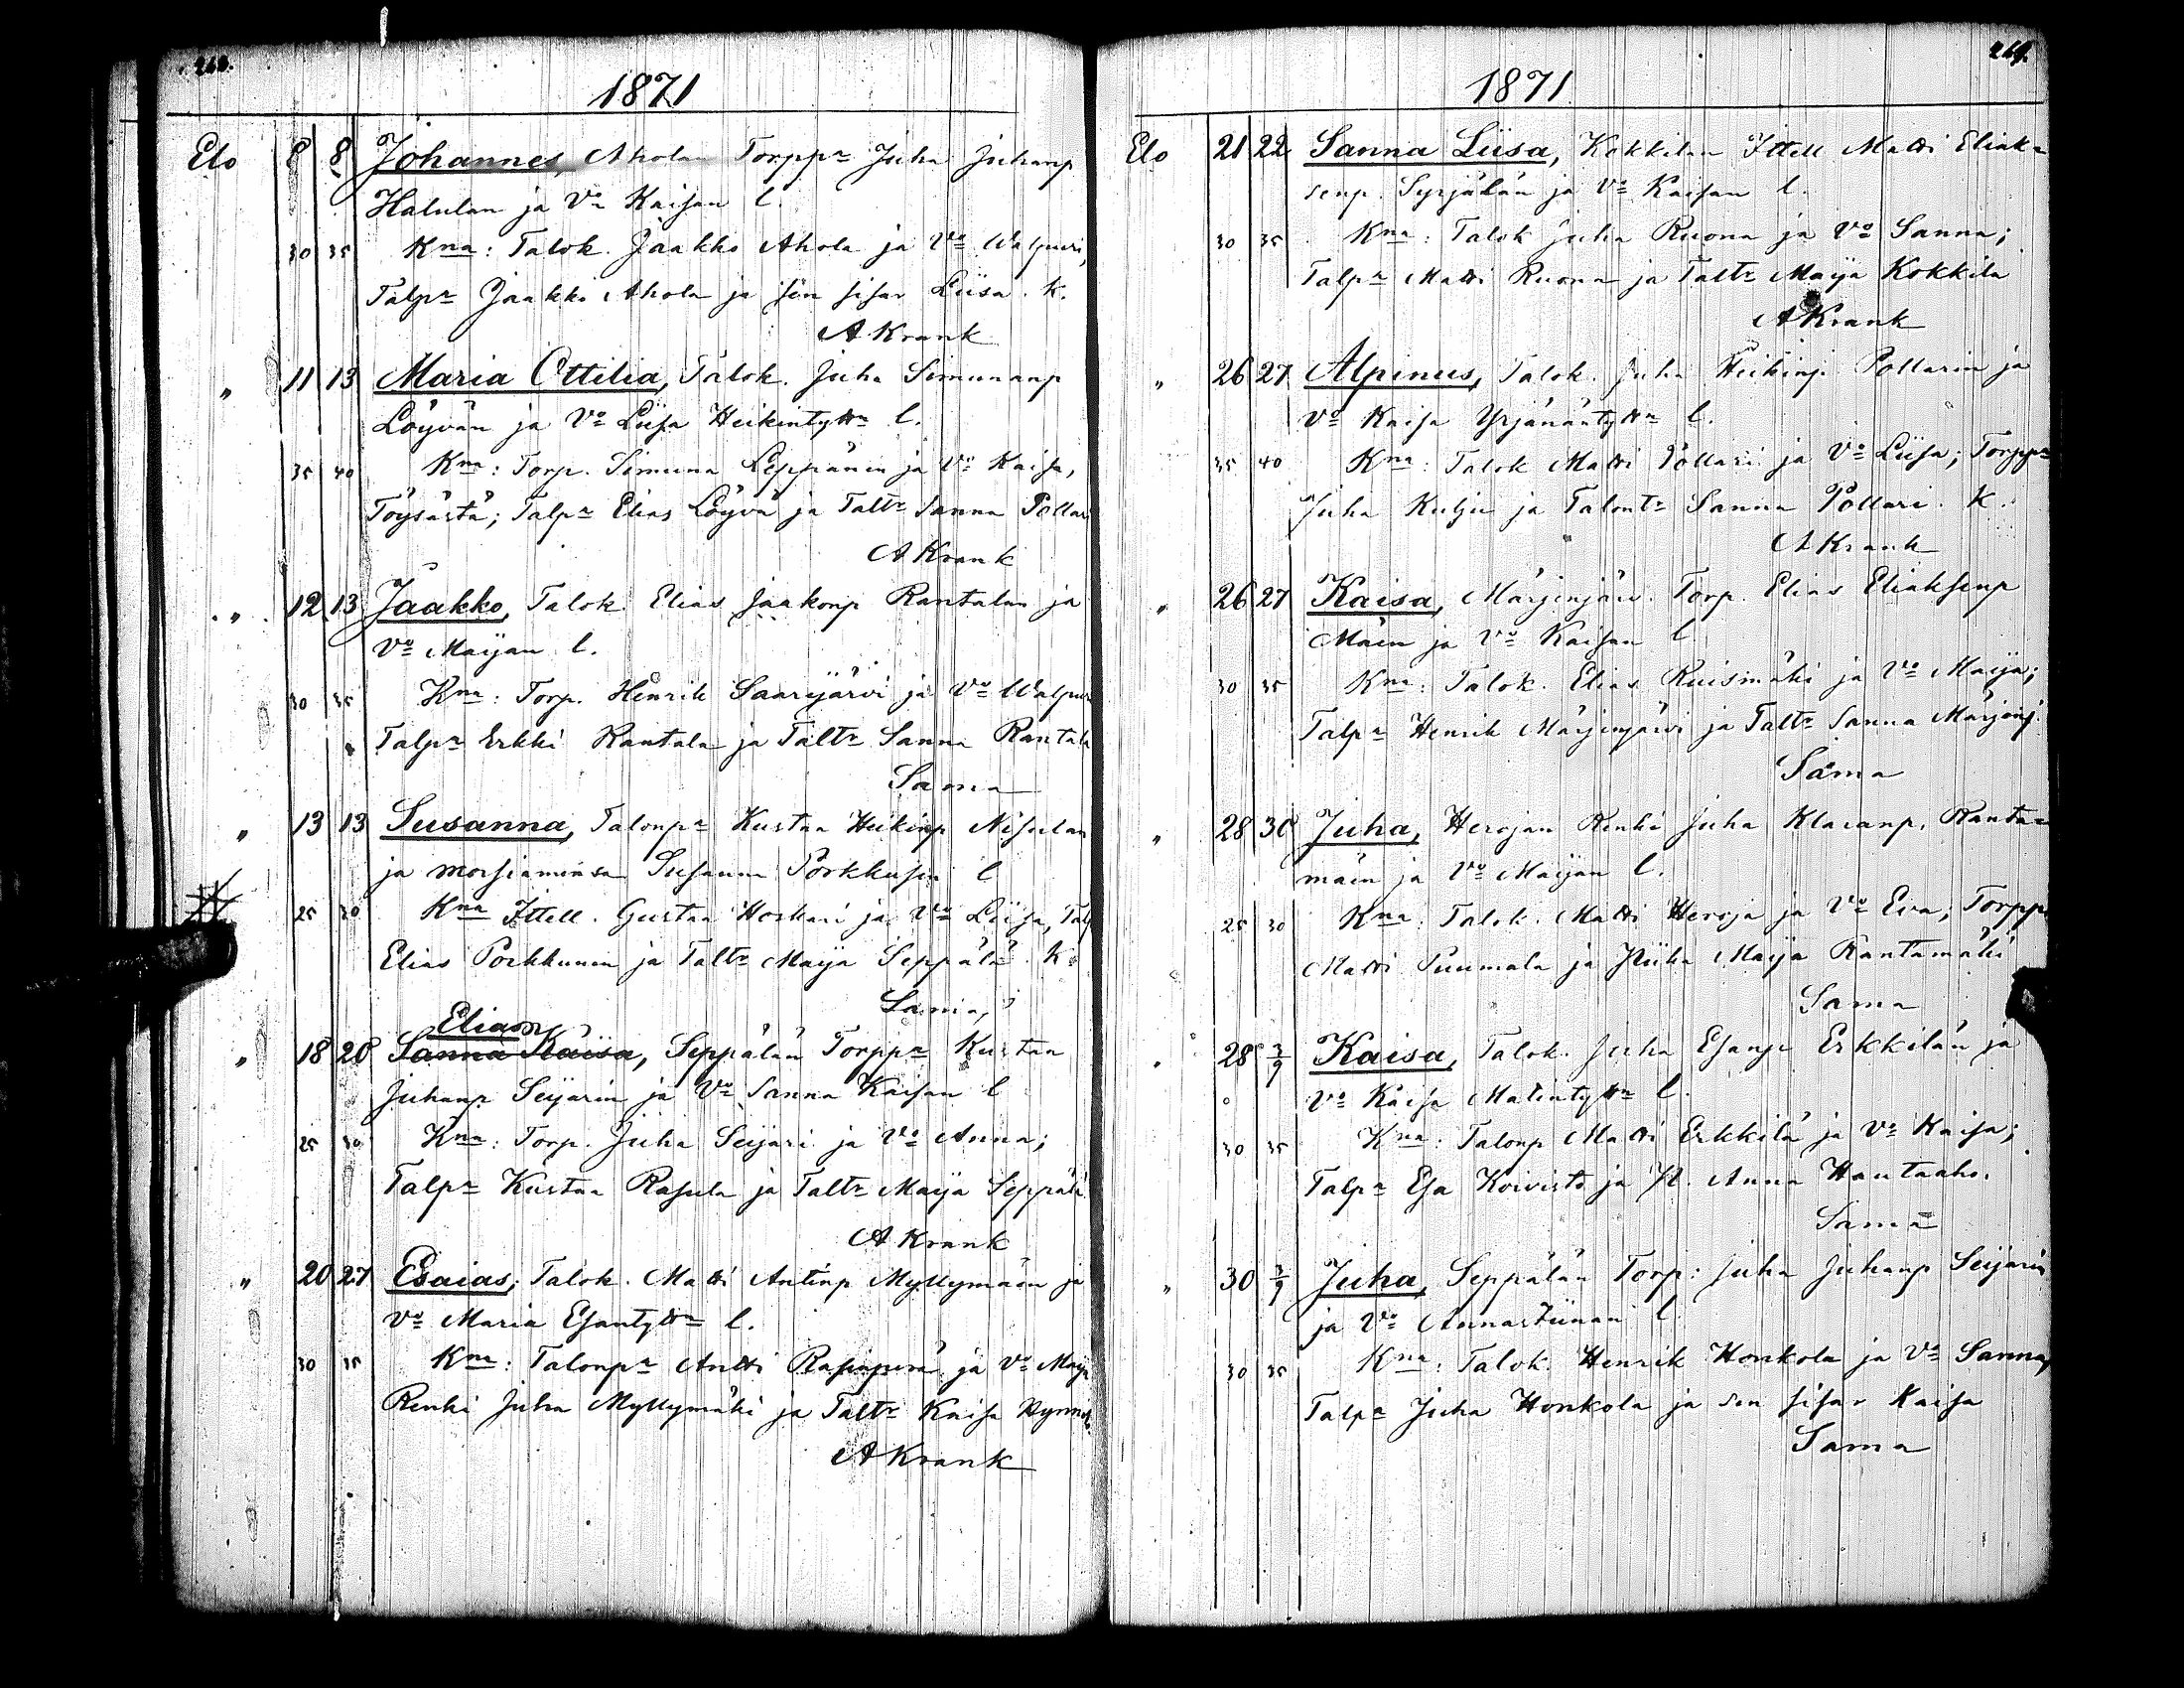 268.
1871
Elo 8 8 Johannes, Aholan Torppr Juha Juhanp
Halulan ja Vo Kaisan l.
30 35 Kna: Talok. Jaakko Ahola ja Vo Walpuri,
Talpr Jaakko Ahola ja sen sisar Liisa. K.
A Krank
" 11 13 Maria Ottilia, Talok. Juha Simunanp
Löyvän ja Vo Liisa Heikintyttn l.
35 40 Kna: Torp. Simuna Leppänen ja Vo Kaisa,
Töysästä; Talpr Elias Löyvä ja Taltr Sanna Pollari
A Krank
" 12 13 Jaakko, Talok. Elias Jaakonp Rantalan ja
Vo Maijan l.
30 35 Kna: Torp. Henrik Saarijärvi ja Vo Walpuri
Talpr Erkki Rantala ja Taltr Sanna Rantala
Sama
" 13 13 Susanna, Talonpr Kustaa Heikinp Nisulan
ja morsiamensa Susanna Porkkusen l
25 30 Kna Ittell. Gustaa Hoskari ja Vo Liisa, Talp
Elias Porkkunen ja Taltr Maija Seppälä. K.
Sama,
Elian
" 18 20 Sanna Kaisa, Seppälän Torppr Kustaa
Juhanp Seijarin ja Vo Sanna Kaisan l
25 30 Kna: Torp. Juha Seijari ja Vo Anna;
Talpr Kustaa Rasula ja Taltr Maija Seppälä
A Krank
" 20 27 Esaias, Talok. Matti Antinp Myllymäen ja
Vo Maria Esantyttn l.
30 35 Kna: Talonpr Antti ja Vo Maija
Renki Juha Myllymäki ja Taltr Kaisa
A Krank
269.
1871
Elo 21 22 Sanna Liisa, Kokkilan Ittell Matti Eliak-
senp. Syrjälän ja Vo Kaisan l.
30 35 Kna: Talok Juha Ruona ja Vo Sanna;
Talpr Matti Ruona ja Taltr Maija Kokkila
A Krank
" 26 27 Alpinus, Talok. Juha Heikinp. Pollarin ja
Vo Kaisa Yrjänäntyttn l.
35 40 Kna: Talok Matti Pollari ja Vo Liisa; Torppr
Juha Kulju ja Talontr Sanna Pollari. K.
A Krank
" 26 27 Kaisa, Märjenjärv. Torp. Elias Eliaksenp
Mäen ja Vo Kaisan l
30 35 Kna: Talok. Elias Ruismäki ja Vo Maija;
Talpr Henrik Märjenjärvi ja Taltr Sanna Märjenj.
Sama
" 28 30 Juha, Herojan Renki Juha Klaranp. Ranta-
mäen ja Vo Maijan l.
25 30 Kna: Talok. Matti Heroja ja Vo Eva; Torppr
Matti Puumala ja Piika Maija Rantamäki
Sama
" 28 3/9 Kaisa, Talok. Juha Esanp Erkkilän ja
Vo Kaisa Matintyttn l.
30 35 Kna: Talonp Matti Erkkilä ja Vo Kaisa;
Talpr Esa Koivisto ja It. Anna Hautaaho.
Sama
" 30 3/9 Juha, Seppälän Torp: Juha Juhanp Seijarin
ja Vo Annastiinan l
30 35 Kna: Talok. Henrik Honkola ja Vo Sanna,
Talpr Juha Honkola ja sen sisar Kaisa
Sama